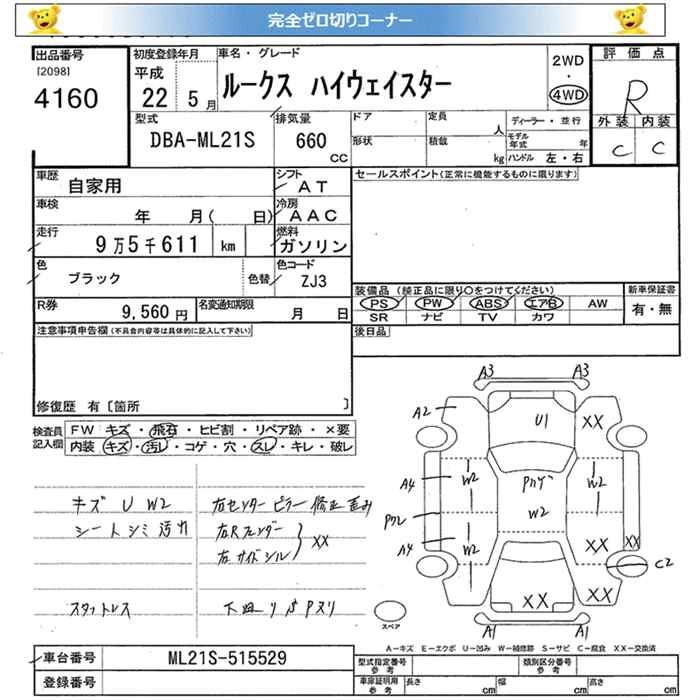 完全ゼロ切りコーナー
出品番号
[2098]
4160
初度登録年月
平成
22 5月
車名・グレード
ルークス ハイウェイスター
2WD
・
4WD
評価点
R
外装 内装
C C
型式
DBA-ML21S
排気量
660
CC
ドア
定員
人
形状
積載
kg
ディーラー・並行
モデル年式 年
ハンドル 左・右
車歴
自家用
シフト
AT
車検
年 月( 日)
冷房
AAC
走行
9万5千611 km
燃料
ガソリン
色
ブラック
色替
色コード
ZJ3
R券
9,560円
名変通知期限
月 日
セールスポイント(正常に機能するものに限ります)
装備品 (純正品に限り○をつけてください)
PS PW ABS エアB AW
SR ナビ TV カワ
新車保証書
有・無
後日品
注意事項申告欄(不具合内容等は具体的に記入して下さい)
修復歴 有〔箇所 〕
検査員記入欄
FW キズ・飛石・ヒビ割・リペア跡・×要
内装 キズ・汚レ・コゲ・穴・スレ・キレ・破レ
キズ U W2
シートシミ汚れ
スタットレス
右センターピラー修正歪み
右Rフェンダー
右サイドシル
XX
A3 A3
A2
U1
XX
A4
W2
W2
Pカレ
W2
A4
W2
XX
XX
C2
XX XX
A1 A1
スペア
A－キズ E－エクボ U－凹み W－補修跡 S－サビ C－腐食 XX－交換済
車台番号
ML21S-515529
登録番号
型式指定番号
参考
類別区分番号
参考
車庫証明用
参考
長さ cm
幅 cm
高さ cm